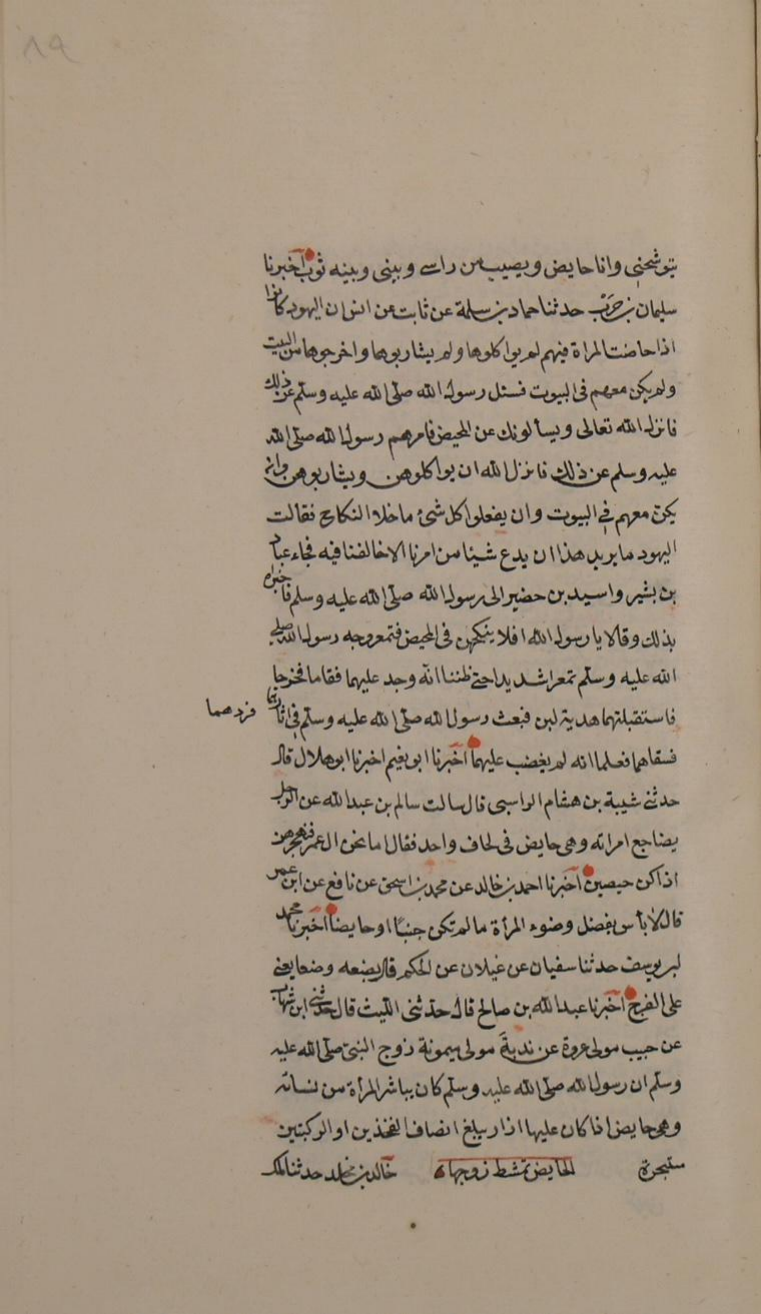 ٨٩
يتوشحني وانا حايض ويصيب من راسي وبيني وبينه ثوب اخبرنا
سليمان بن حرب حدثنا حماد بن سلمة عن ثابت عن انس ان اليهود كانوا
اذا حاضت المراة فيهم لم يواكلوها ولم يشاربوها واخرجوها من البيت
ولم يكن معهم في البيوت فسئل رسول الله صلى الله عليه وسلم عن ذلك
فانزل الله تعالى ويسألونك عن المحيض فامرهم رسول الله صلى الله
عليه وسلم عن ذلك فانزل الله ان يواكلوهن ويشاربوهن وان
يكن معهم في البيوت وان يفعلوا كل شئ ما خلا النكاح فقالت
اليهود ما يريد هذا ان يدع شيئا من امرنا الا خالفنا فيه فجاء عباد
بن بشير واسيد بن حضير الى رسول الله صلى الله عليه وسلم فاخبراه
بذلك وقالا يا رسول الله افلا ينكحهن في المحيض فتمعر وجه رسول الله صلى
الله عليه وسلم تمعرا شديدا حتى ظننا انه وجد عليهما فقاما فخرجا
فاستقبلتهما هدية لبن فبعث رسول الله صلى الله عليه وسلم في اثارهما فردهما
فسقاهما فعلما انه لم يغضب عليهما اخبرنا ابو نعيم اخبرنا ابو هلال قال
حدثني شيبة بن هشام الراسبي قال سالت سالم بن عبد الله عن الرجل
يضاجع امراته وهي حايض في لحاف واحد فقال اما نحن ال عمر فنهجرهن
اذا كن حيصين اخبرنا احمد بن خالد عن محمد بن اسحق عن نافع عن ابن عمر
قال لا بأس بفضل وضوء المرأة ما لم تكن جنبا او حايضا اخبرنا محمد
بن يوسف حدثنا سفيان عن غيلان عن الحكم قال يضعه وضعا يعني
على الفرج اخبرنا عبد الله بن صالح قال حدثني الليث قال حدثني ابن شهاب
عن حبيب مولى عروة عن ندبة مولى ميمونة زوج النبي صلى الله عليه
وسلم ان رسول الله صلى الله عليه وسلم كان يباشر المرأة من نسائه
وهي حايض اذا كان عليها ازار يبلغ انصاف الفخذين او الركبتين
الحايض تمشط زوجها خالد بن مخلد حدثنا مالك